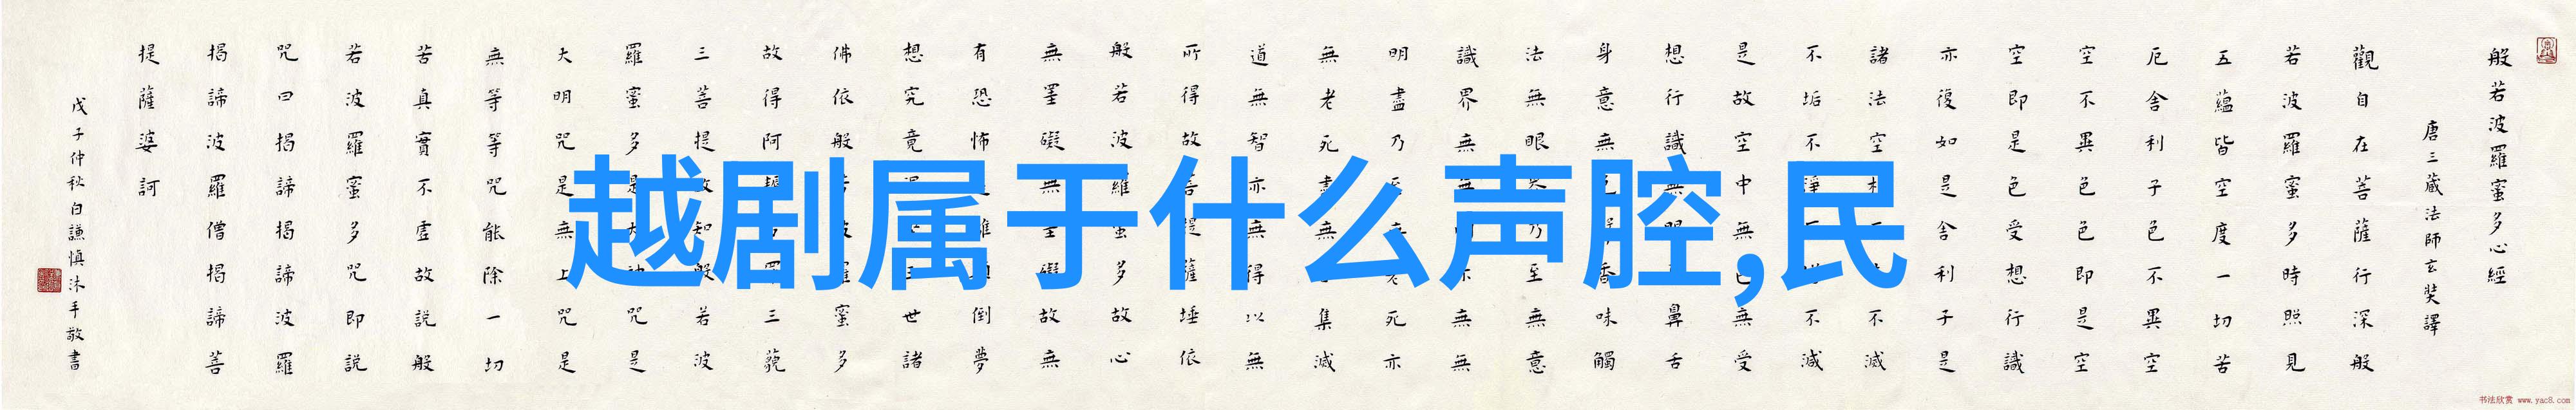 般若波羅蜜多心經
唐三藏法師玄奘譯
觀自在菩薩行深般
若波羅蜜多時照見
五蘊皆空度一切苦
厄舍利子色不異空
空不異色色即是空
空即是色受想行識
亦復如是舍利子是
諸法空相不不滅
不垢不淨不增不減
是故空中無色無受
想行識無眼鼻舌
身意無色聲香味觸
法無眼界乃至無意
識界無無明亦無無
明盡乃至無老死亦
無老死盡無集滅
道無智亦無得以無
所得故菩提薩埵依
般若波羅蜜多故心
無罣礙無罣礙故無
有恐怖遠離顛倒夢
想究竟三世諸
佛依般若波羅蜜多
故得阿耨多羅三藐
三菩提故知般若波
羅蜜多是大神咒是
大明咒是無上咒是
無等等咒能除一切
苦真實不虛故說般
若波羅蜜多咒即說
咒曰揭諦揭諦波羅
揭諦波羅僧揭諦菩
提薩婆訶
戊子仲秋白謙慎沐手敬書
越剧属于什么声腔,民
书法欣赏 www.yac8.com